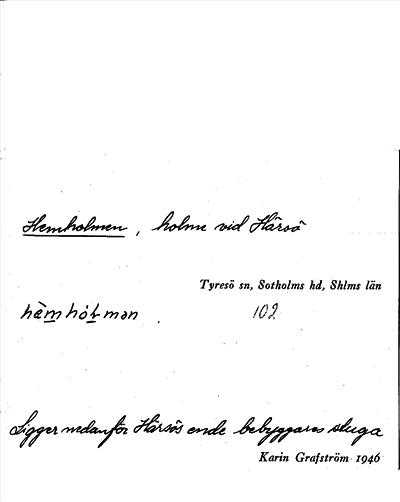 Hemholmen, holme vid Härsö
Tyresö sn, Sotholms hd, Shlms län
hè̀m hól mən 102
Ligger nedanför Härsös ende bebyggares stuga
Karin Grafström 1946